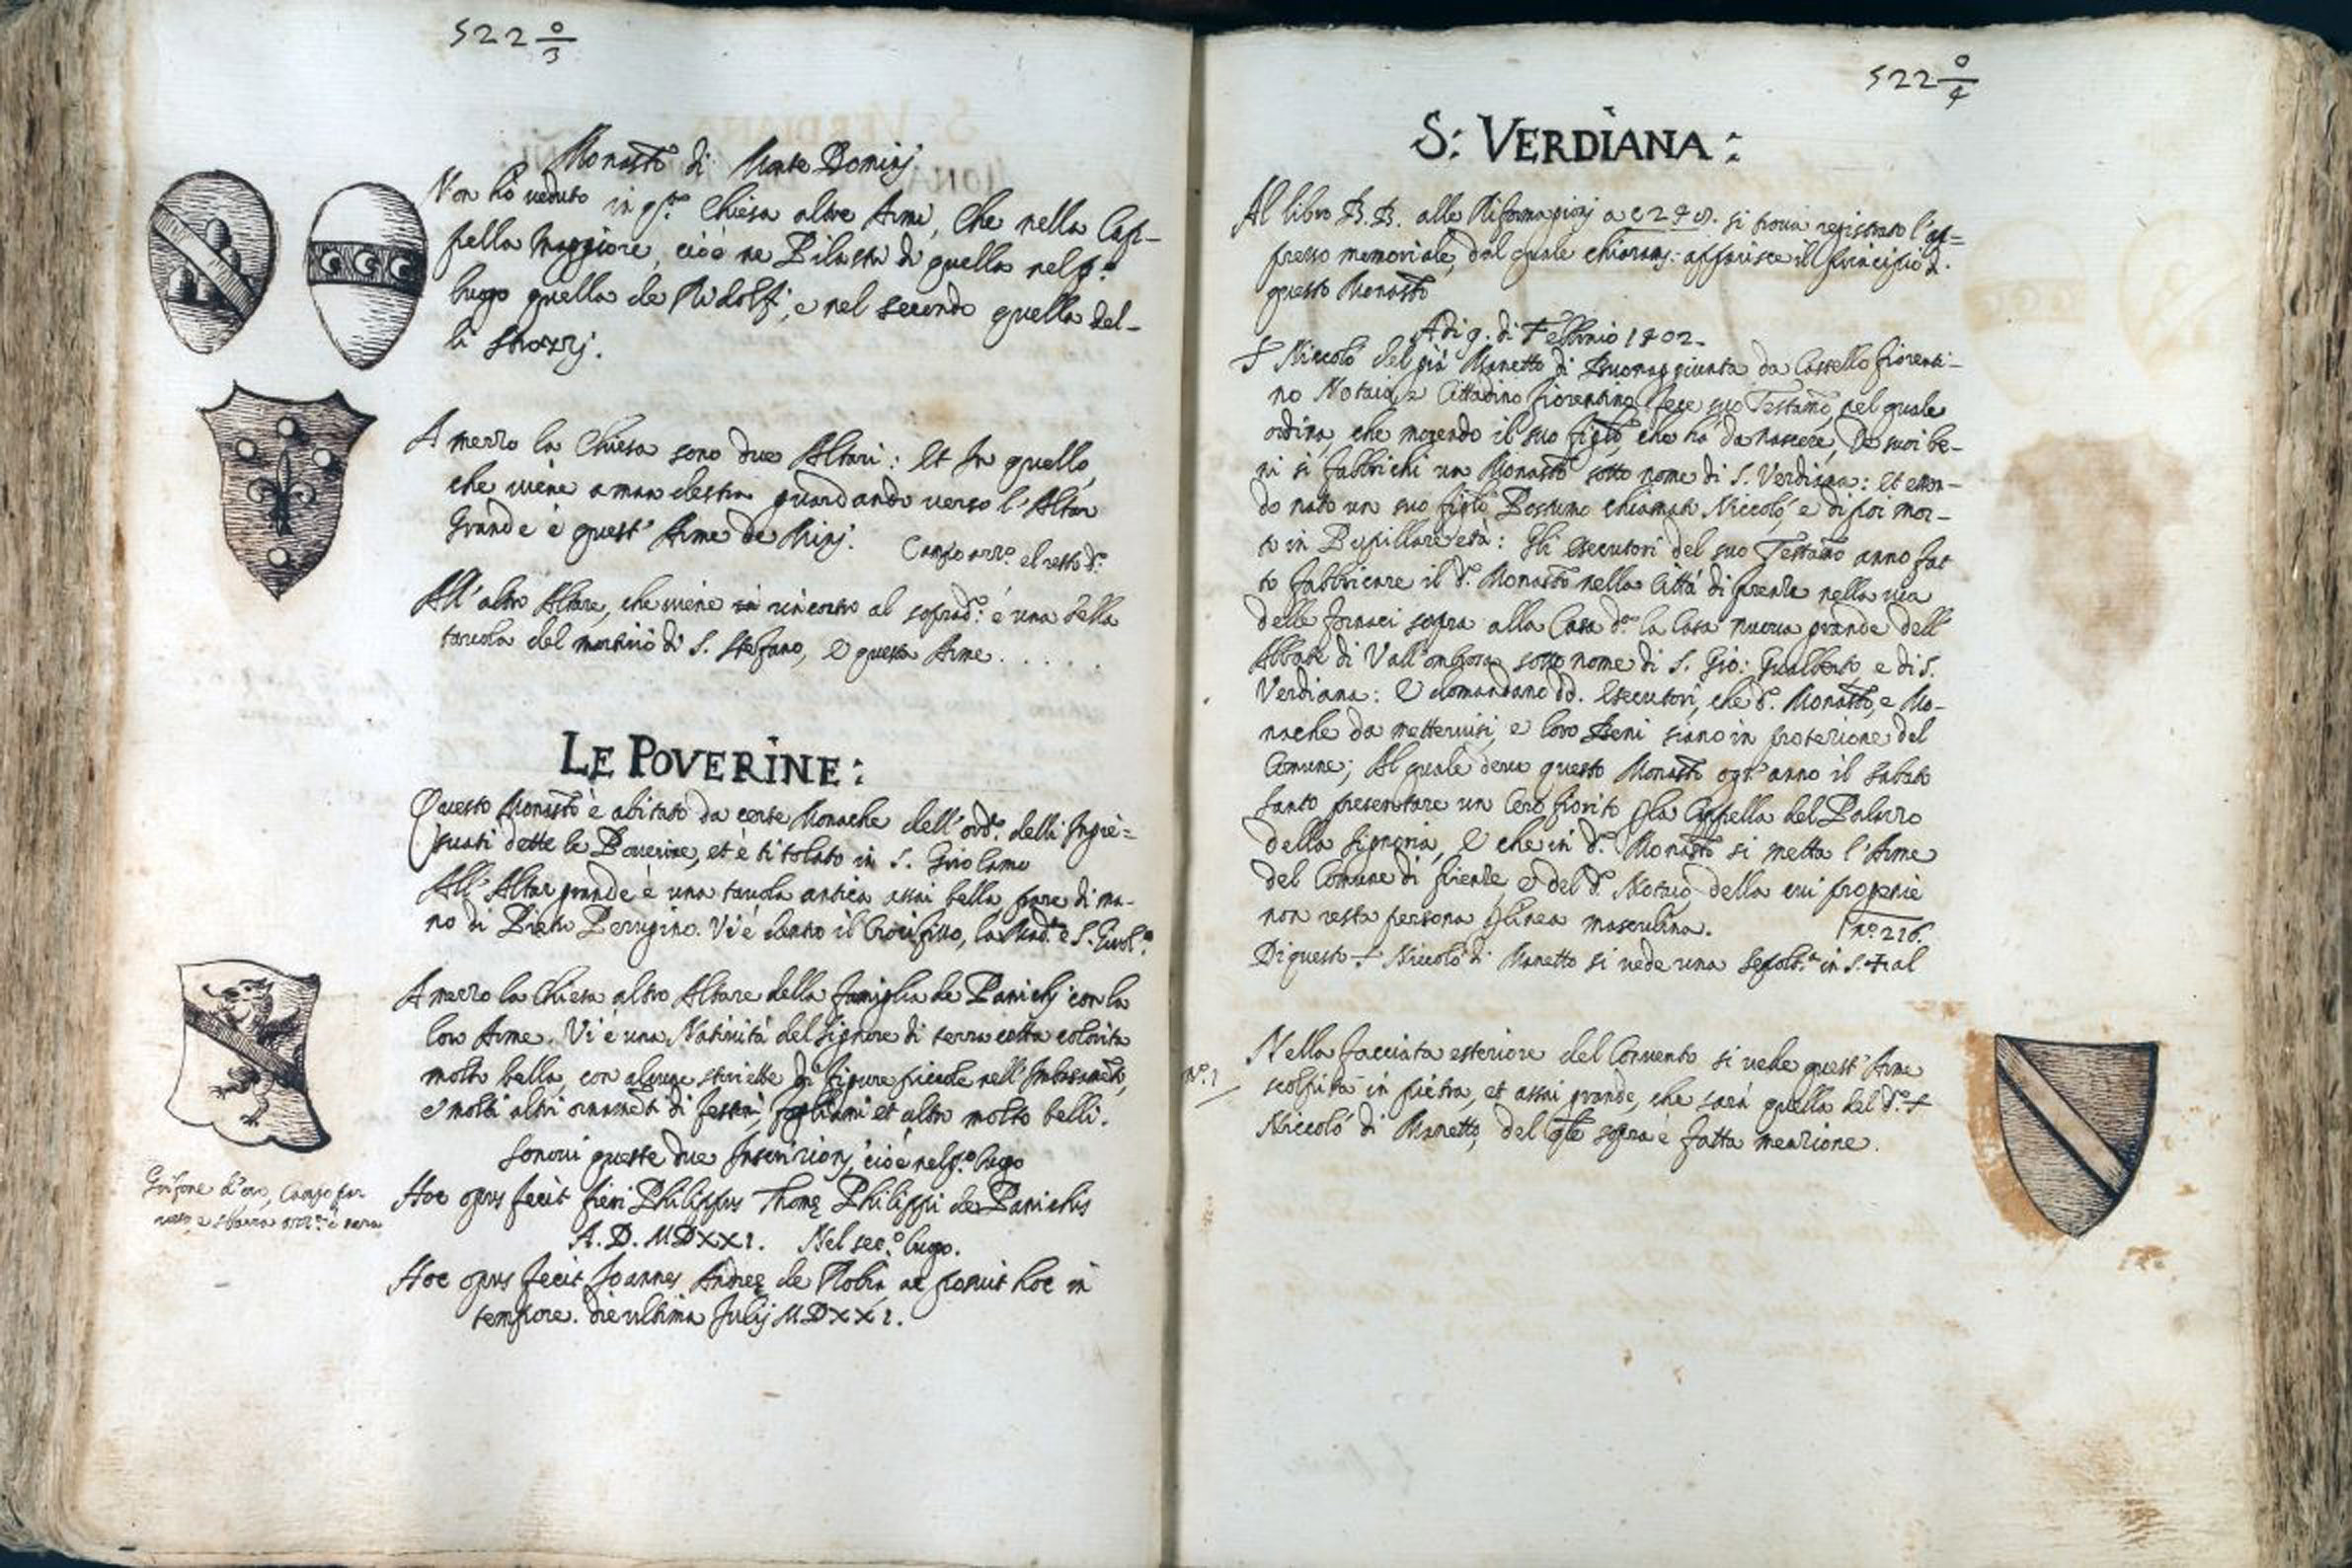 522 0/3
Monasto di Monte Dominj
Non hò veduto in q.ta Chiesa altre Arme, che nella Cap-
pella Maggiore, cioè ne Pilastri di quella nel p.o
luogo quella de Ridolfi, e nel secondo quella del-
li Strozzj.
A mezzo la Chiesa sono due Altari: et In quello,
che viene a man destra guardando verso l'Altar
Grande è quest' Arme de Minj. Campo azz.o el resto d.o
All'altro Altare, che viene in rincontro al soprad.o è una bella
tavola del martirio di S. Stefano, e questa Arme . . . . .
LE POVERINE:
Questo Monasto è abitato da certe Monache dell'ord.e delli Ingie=
suati dette le Poverine, et è titolato in S. Girolamo
All'Altar grande è una tavola antica assai bella, pare di ma-
no di Pietro Perugino. Vi è dento il Crocifisso, la Mad.a e S. Girol.o
A mezzo la Chiesa altro Altare della famiglia de Panichj con la
loro Arme. Vi è una Natività del Signore di terra cotta colorita
molto bella, con alcune storiette di figure piccole nell'Imbasamento,
e molti altri ornamēti di festoni, fogliami et altro molto belli.
Sonovi queste due Inscrizionj, cioè nel p.o luogo
Hoc opus fecit fieri Philippus Thomę Philippi de Panichis
A. D. MDXXI. Nel sec.o luogo.
Hoc opus fecit Joannes Andreę de Robia ac posuit hoc in
tempore. die ultima Julij MDXXI.
Grifone d'oro, Campo
e sbarra
522 0/4
S: VERDIANA:
Al libro B.B. alle Riformagionj a c 248. si trova registrato l'ap=
presso memoriale, dal quale chiaram. apparisce il principio d.
questo Monasto
Adi 9. di Febbraio 1402.
S Niccolò del già Manetto di Buonaggiunta da Castello fiorenti-
no Notaio, e Cittadino fiorentino, fece suo Testamō, nel quale
ordina, che morendo il suo figlō, che ha da nascere, De suoi be-
ni si fabbrichi un Monasto sotto nome di S. Verdiana: et essen-
do nato un suo figlō Postumo chiamato Niccolò, e di poi mor-
to in Pupillare età: Gli Esecutori del suo Testamō anno fat
to fabbricare il d.o Monasto nella Città di firenze nella via
delle fornaci sopra alla Casa d.a la Casa nuova grande dell'
Abbate di Vall'ombrosa sotto nome di S. Gio: Gualberto, e di S.
Verdiana: E domandano dd. Esecutori, che d.o Monasto, e Mo-
nache da mettervisi, e loro Beni siano in protezione del
Comune; Al quale deva questo Monasto ogn'anno il Sabato
Santo presentare un Cero fiorito p la Cappella del Palazzo
della Signoria, E che in d.o Monasto si metta l'Arme
del Comune di firenze e del d.o Notaio della cui progenie
non resta persona p linea masculina. n.o 216.
Di questo S Niccolò di Manetto si vede una Sepolt.a in S.
n.o 1
Nella facciata esteriore del Convento si vede quest'Arme
scolpita in pietra, et assai grande, che sarà quella del d.o S
Niccolò di Manetto, del qle sopra è fatta menzione.